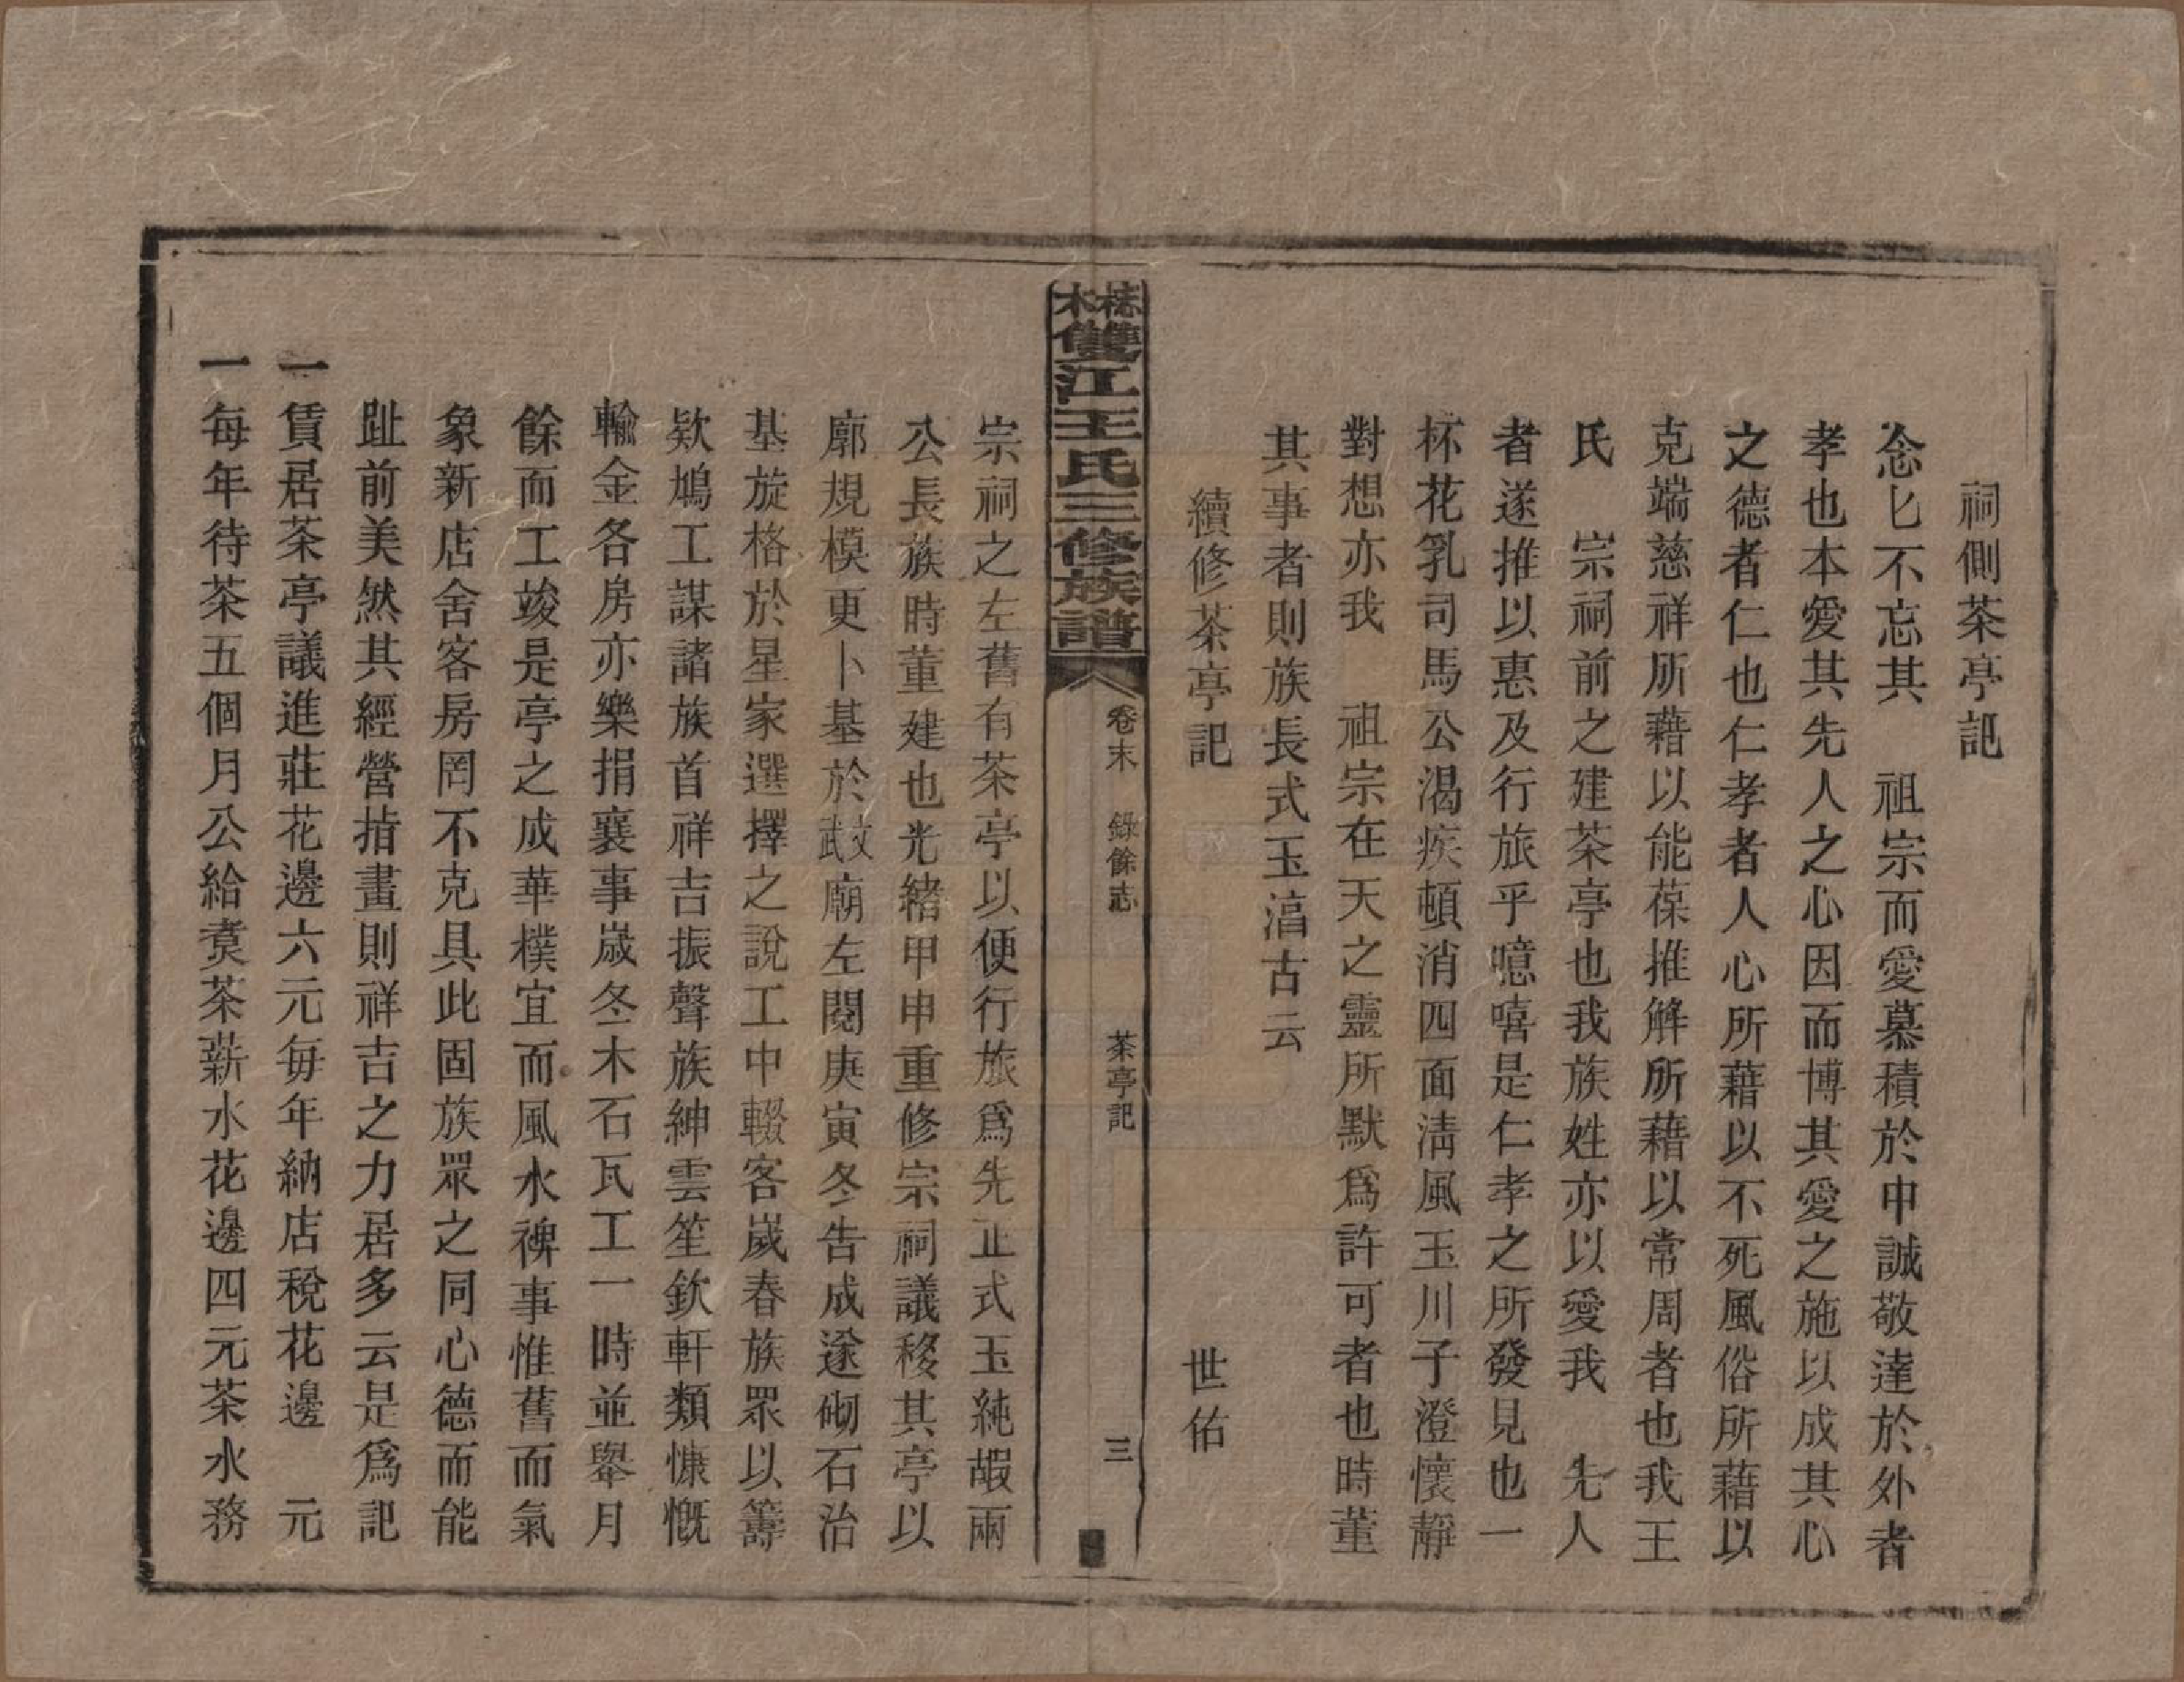 祠側茶亭記
念匕不忘其　祖宗而愛慕積於中誠敬達於外者
孝也本愛其先人之心因而博其愛之施以成其心
之德者仁也仁孝者人心所藉以不死風俗所藉以
克端慈祥所藉以能葆推解所藉以常周者也我王
氏　宗祠前之建茶亭也我族姓亦以愛我　先人
者遂推以惠及行旅乎噫嘻是仁孝之所發見也一
杯花乳司馬公渴疾頓消四面清風玉川子澄懷靜
對想亦我　祖宗在天之靈所默爲許可者也時董
其事者則族長式玉滀古云
續修茶亭記　世佑
木櫺雙江王氏三修族譜　卷末　錄餘志　茶亭記　三
宗祠之左舊有茶亭以便行旅爲先正式玉純嘏兩
公長族時董建也光緒甲申重修宗祠議移其亭以
廓規模更卜基於文武廟左閱庚寅冬告成遂砌石治
基旋格於星家選擇之說工中輟客歲春族眾以籌
欵鳩工謀諸族首祥吉振聲族紳雲笙欽軒類慷慨
輸金各房亦樂捐襄事嵗冬木石瓦工一時並舉月
餘而工竣是亭之成華樸宜而風水裨事惟舊而氣
象新店舍客房罔不克具此固族眾之同心德而能
趾前美然其經營指畫則祥吉之力居多云是爲記
一賃居茶亭議進莊花邊六元每年納店稅花邊　元
一每年待茶五個月公給煑茶薪水花邊四元茶水務